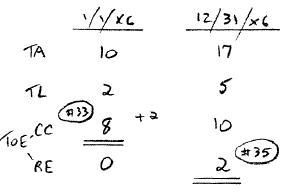 1/1/X6 12/31/X6
TA 10 17
TL 2 5
#33
TOE CC 8 +2 10
RE 0 2 #35